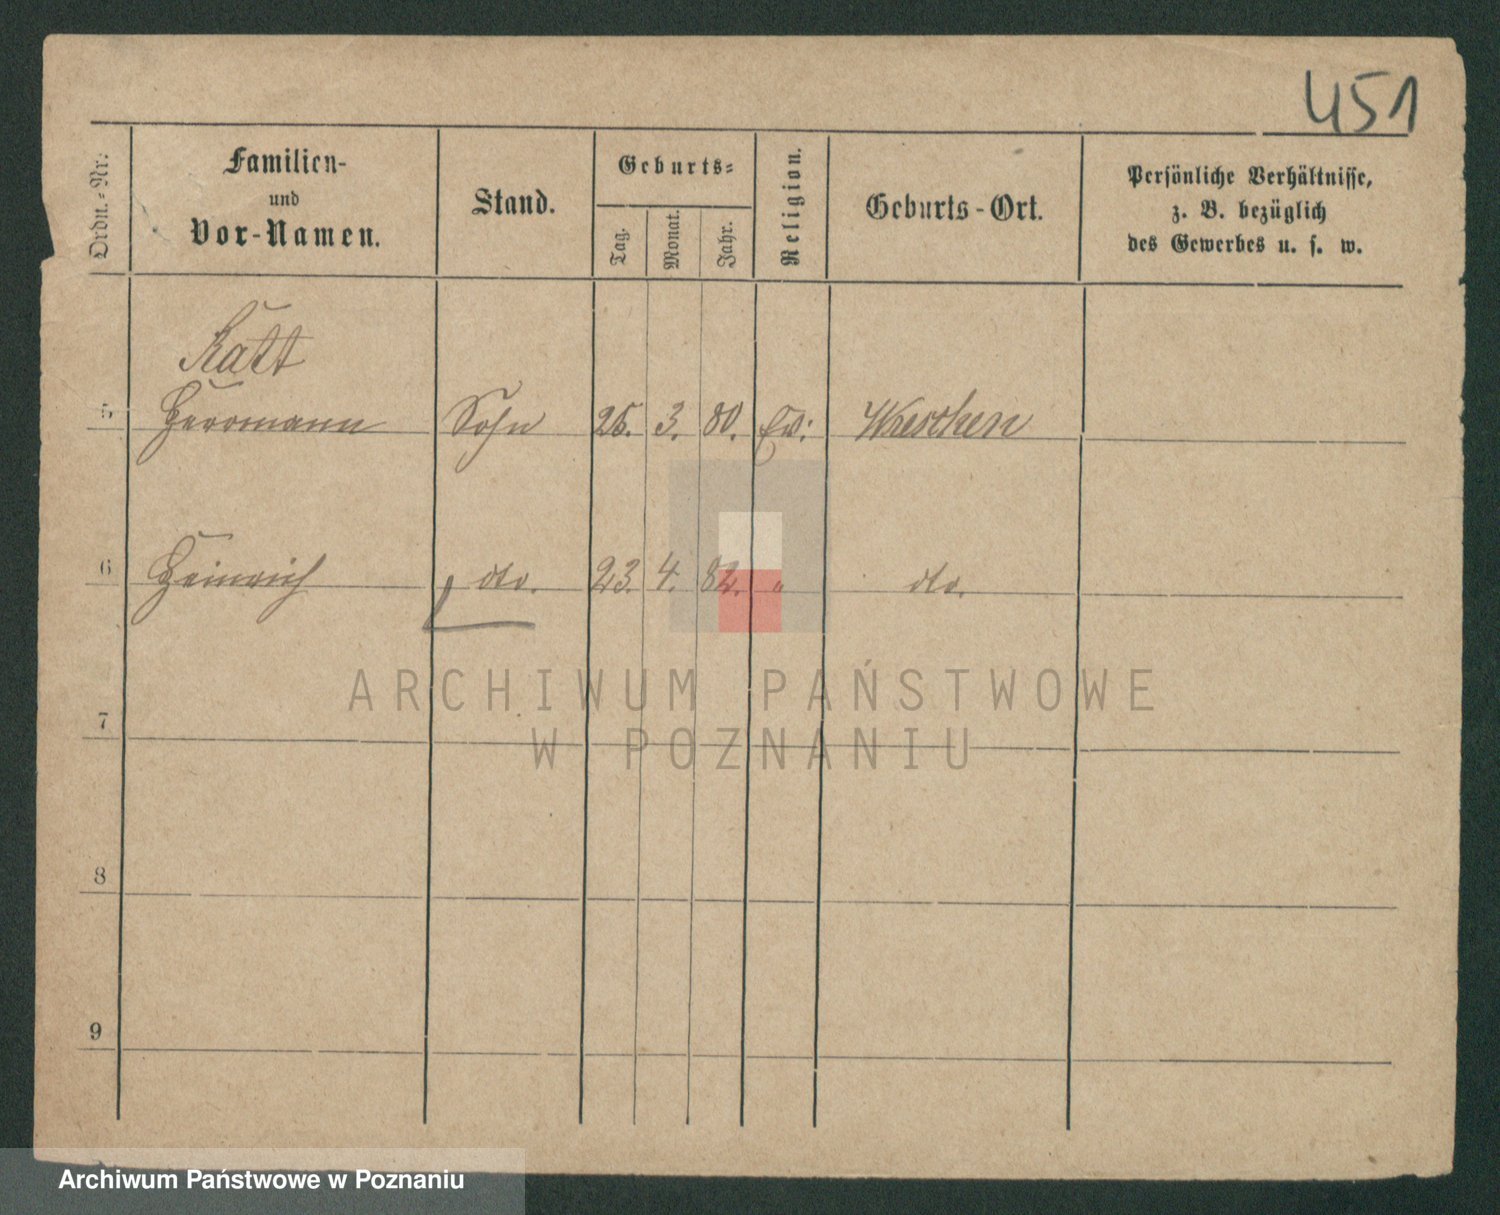 451
Ordn.-Nr.
Familien-
und
Vor-Namen.
Stand.
Geburts-
Tag.
Monat.
Jahr.
Religion.
Geburts-Ort.
Persönliche Verhältnisse,
z. B. bezüglich
des Gewerbes u. s. w.
Katt
5 Herrmann Sohn 25. 3. 80. Ev: Wreschen
6 Heinrich dto. 23. 4. 82. " dto.
7
8
9
ARCHIWUM PAŃSTWOWE
W POZNANIU
Archiwum Państwowe w Poznaniu